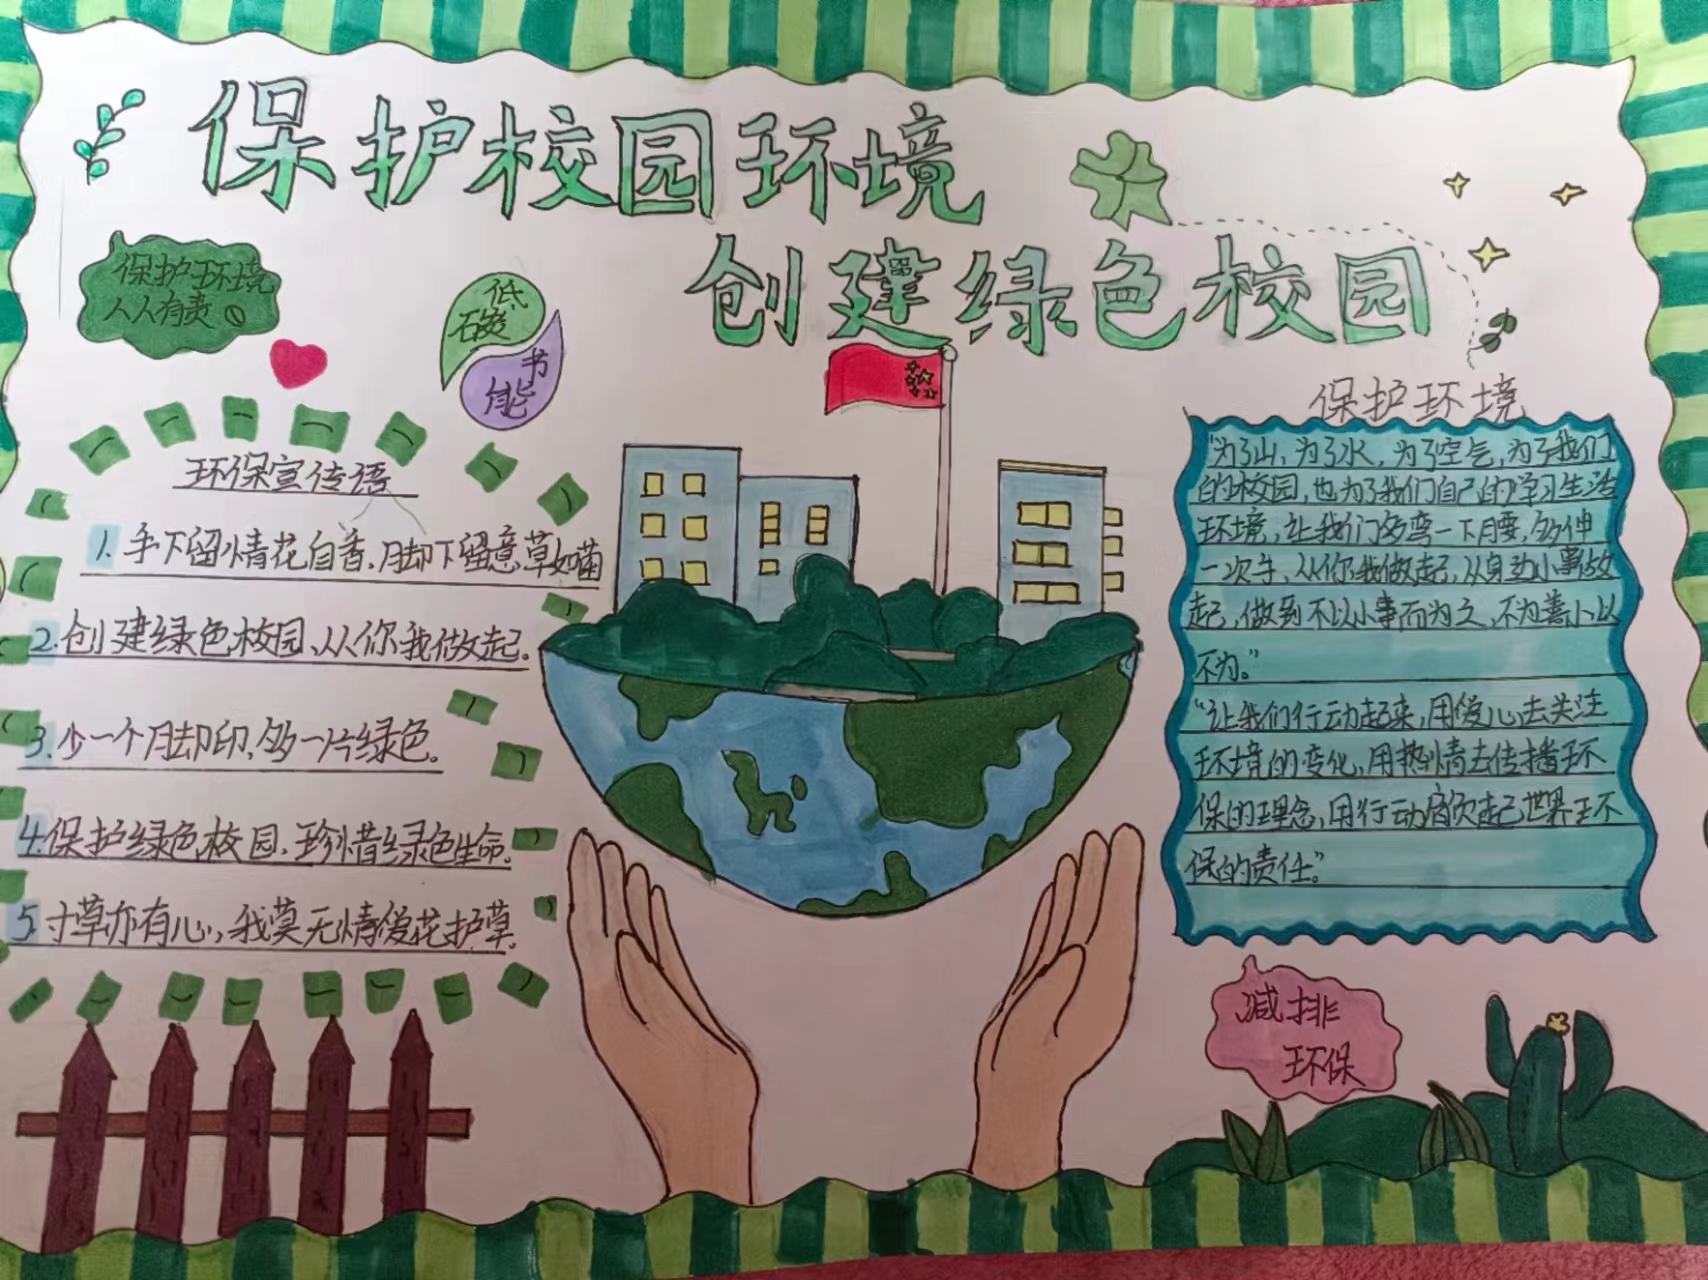 保护校园环境
创建绿色校园
保护环境
人人有责
低
碳
节
能
环保宣传语
1. 手下留情花自香、脚下留意草如茵
2. 创建绿色校园、从你我做起。
3. 少一个脚印,多一片绿色。
4. 保护绿色校园、珍惜绿色生命。
5. 寸草亦有心,我莫无情爱花护草。
保护环境
“为了山,为了水,为了空气,为了我们
的校园,也为了我们自己的学习生活
环境,让我们多弯一下腰,多伸
一次手、从你我做起、从身边小事做
起,做到不以小事而为之、不为善小以
不为。”
“让我们行动起来,用爱心去关注
环境的变化,用热情去传播环
保的理念,用行动肩负起世界环
保的责任。”
减排
环保